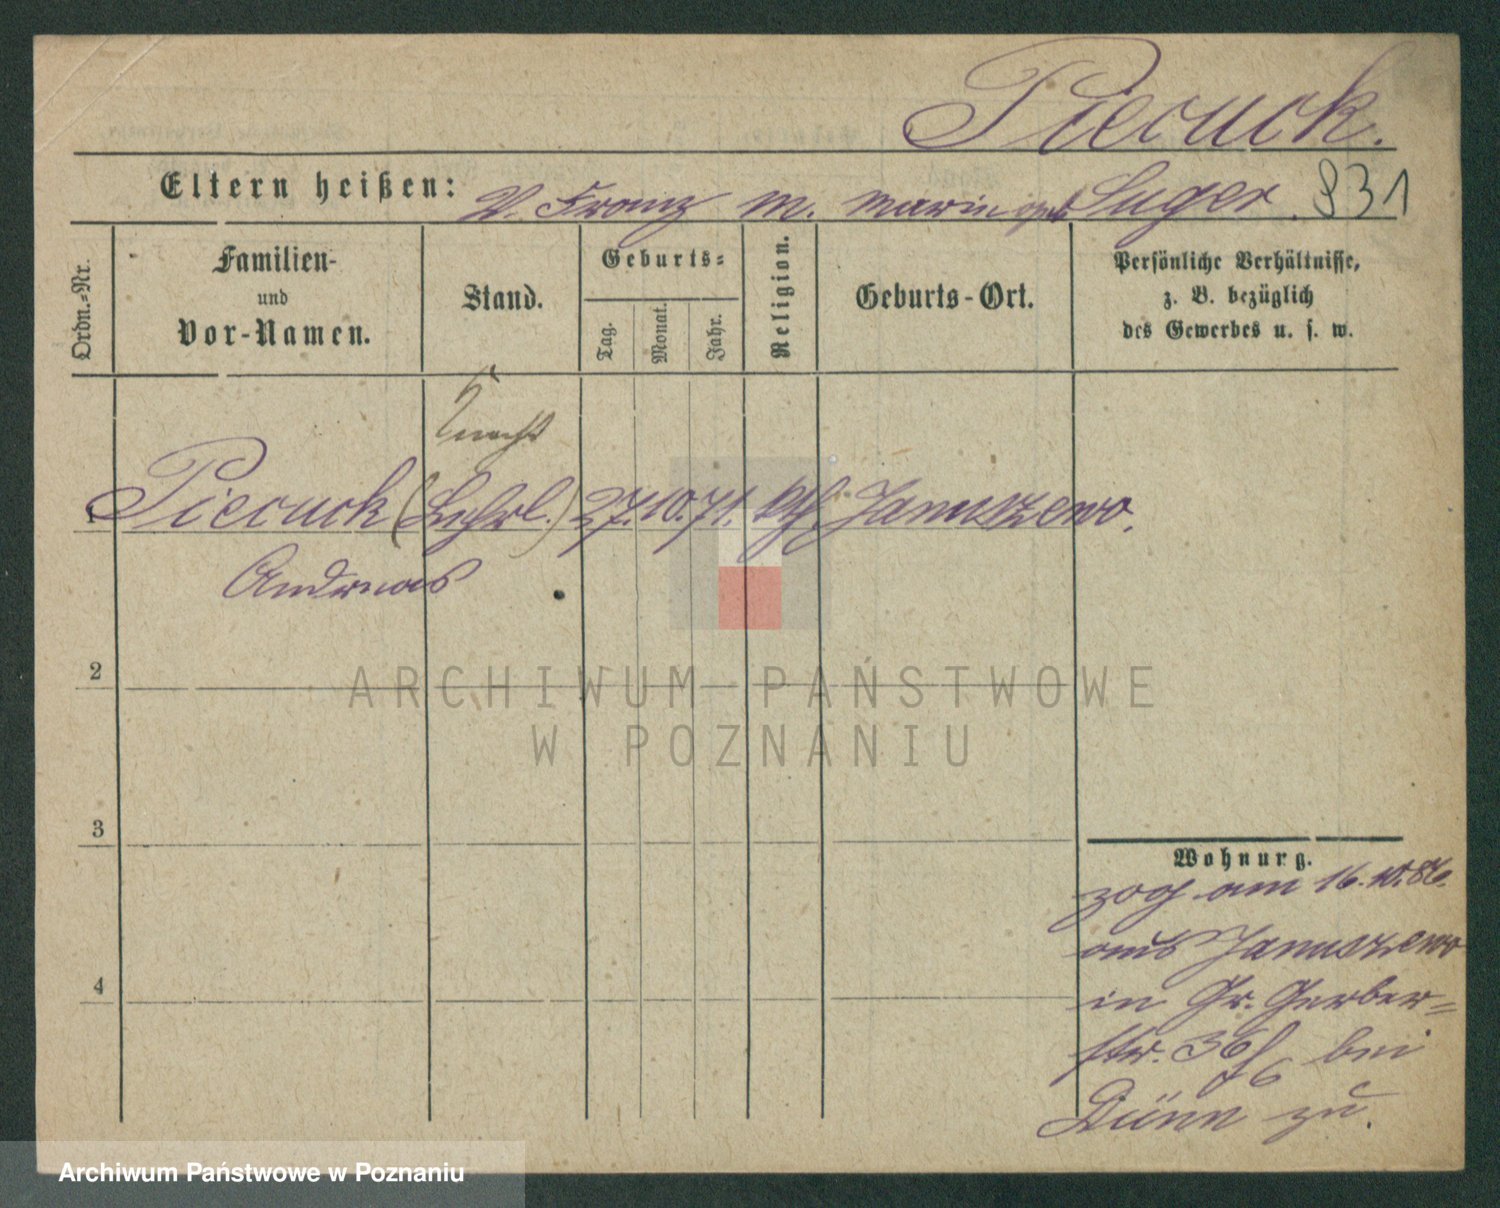 Piecuck.
Eltern heißen: V. Franz M. Marie geb. Suger. 831
Ordn.=Nr.
Familien-
und
Vor-Namen.
Stand.
Geburts=
Tag.
Monat.
Jahr.
Religion.
Geburts-Ort.
Persönliche Verhältnisse,
z. B. bezüglich
des Gewerbes u. s. w.
Knecht
1 Piecuck (Lehrl.) 27. 10. 71. kth. Januszewo.
Andreas
2
3
4
Wohnung.
zog am 16.10.86.
aus Januszewo
in Gr. Gerber=
str. 36 bei
Dünn zu.
ARCHIWUM PAŃSTWOWE
W POZNANIU
Archiwum Państwowe w Poznaniu